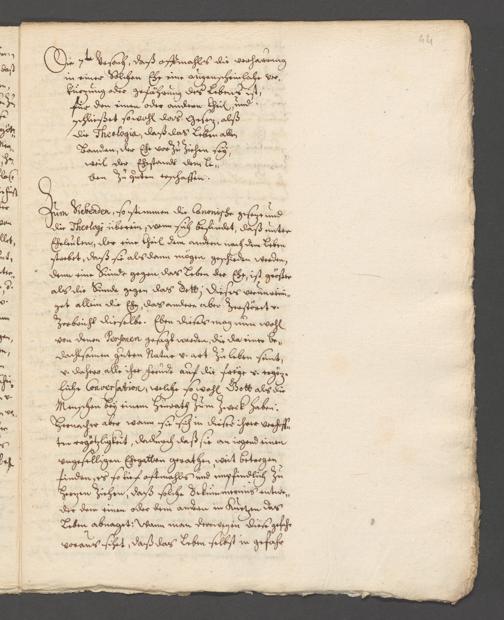 44
Die 7te Ursach, daß offtmahls die verharrung
in einer solchen Ehe eine augenscheinliche ver¬
kürtzung oder gefährung des Lebens ist,
für den einen oder anderen theil, und
schliesset sowohl das Gesetz, alß
die Theologia, daß das Leben allen
Banden, der Ehe vorzuziehen sey,
weil der Ehestandt dem Le¬
ben zu guten erschaffen.
Zum Siebenden, so stimmen die Canonische gesetze und
die Theologi überein, wann sich befindet, daß unter
Eheleuten, der eine theil dem anderen nach dem Leben
strebet, daß sie alsdann mögen geschieden werden,
denn eine Sünde gegen das Leben der Ehe, ist größer
als die Sünde gegen das Bett; dieses verunreini¬
get allein die Ehe, das andere aber zerstöret v.
zerbricht dieselbe. Eben dieses mag nun wohl
von denen Personen gesagt werden, die da einer be¬
dachtsamen guten Natur v. art zu leben sind,
v. dahero alle ihre freude auf die
liche Conversation, welche so wohl Gott als die
Menschen bey einem Heurath zum zweck haben.
Hernacher aber wann sie sich in dieser ihrer verhoff¬
ten ergötzligkeit, dadurch daß sie an irgend einen
ungeselligen Ehegatten gerathen, weit betrogen
finden, es so tief offtmahls und empfindlich zu
hertzen ziehen, daß solche Bekümmernis entwe¬
der dem einen oder dem andern in kurtzem das
Leben abnaget: Wann man derowegen diese gefahr
voraus sihet, daß das Leben selbst in gefahr